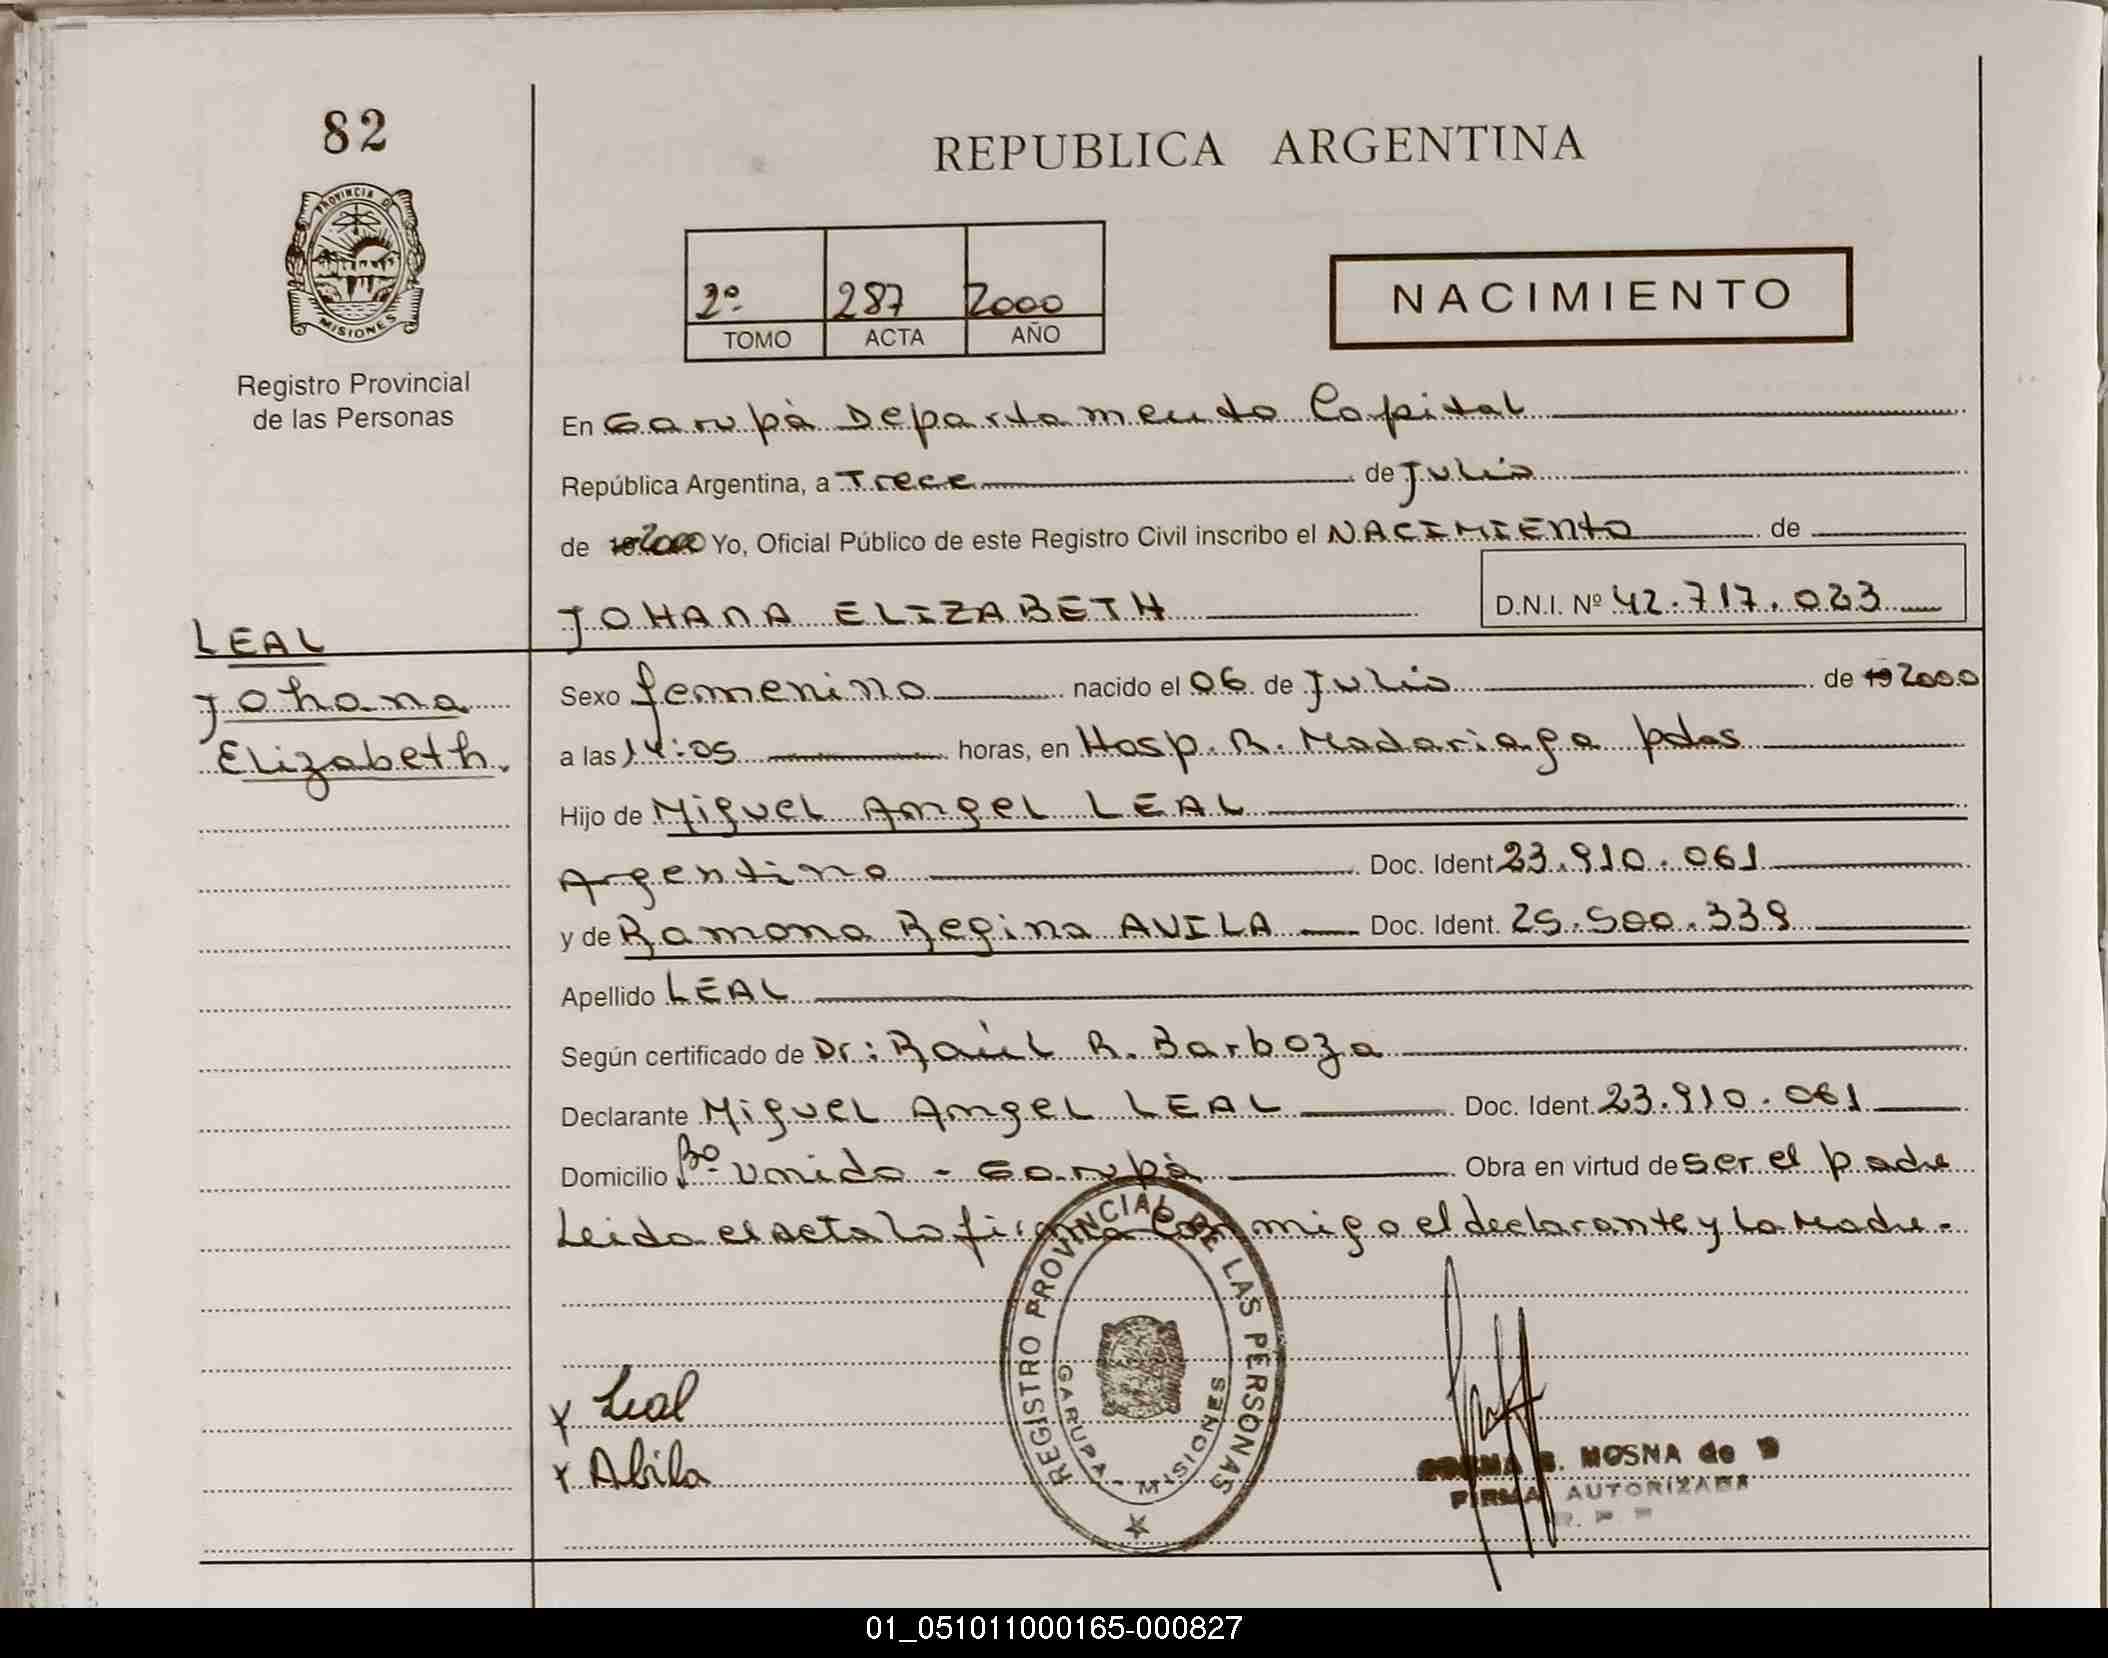 82
PROVINCIA D
MISIONES
Registro Provincial
de las Personas
REPUBLICA ARGENTINA
2º 287 2000
TOMO ACTA AÑO
NACIMIENTO
En Garupà Departamento Capital
República Argentina, a Trece de Julio
de 19 2000 Yo, Oficial Público de este Registro Civil inscribo el NACIMIENTO de
JOHANA ELIZABETH D.N.I. Nº 42.717.023
LEAL
Johana
Elizabeth.
Sexo femenino nacido el 06 de Julio de 19 2000
a las 14:05 horas, en Hosp. R. Madariaga pdas
Hijo de Miguel Angel LEAL
Argentino Doc. Ident 23.910.061
y de Ramona Regina AVILA Doc. Ident. 25.500.339
Apellido LEAL
Según certificado de Dr: Raúl R. Barboza
Declarante Miguel Angel LEAL Doc. Ident. 23.910.061
Domicilio Bº Unido - Garupà Obra en virtud de ser el padre
Leida el acta la firma conmigo el declarante y la Madre-
REGISTRO PROVINCIAL DE LAS PERSONAS
GARUPA - MISIONES
x Leal
x Abila
MOSNA de
FIRMA AUTORIZADA
01_051011000165-000827